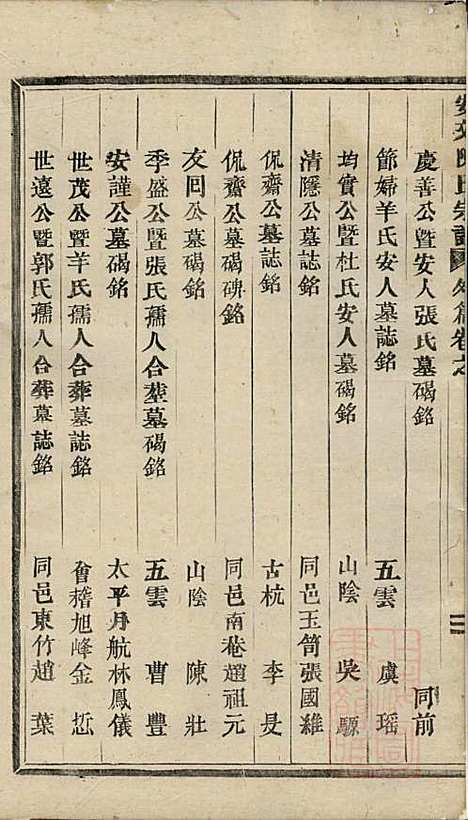 安文陳氏宗譜 外篇卷之 二
慶善公暨安人張氏墓碣銘 同前
節婦羊氏安人墓誌銘 五雲 虞瑶
均實公暨杜氏安人墓碣銘 山陰 吳驥
清隱公墓誌銘 同邑玉笥張國維
侃齋公墓誌銘 古杭 李旻
侃齋公墓碣碑銘 同邑南巷趙祖元
友回公墓碣銘 山陰 陳壯
季盛公暨張氏孺人合塟墓碣銘 五雲 曹豐
安謹公墓碣銘 太平月航林鳳儀
世茂公暨羊氏孺人合葬墓誌銘 會稽旭峰金㤚
世遠公暨郭氏孺人合葬墓誌銘 同邑東竹趙葉